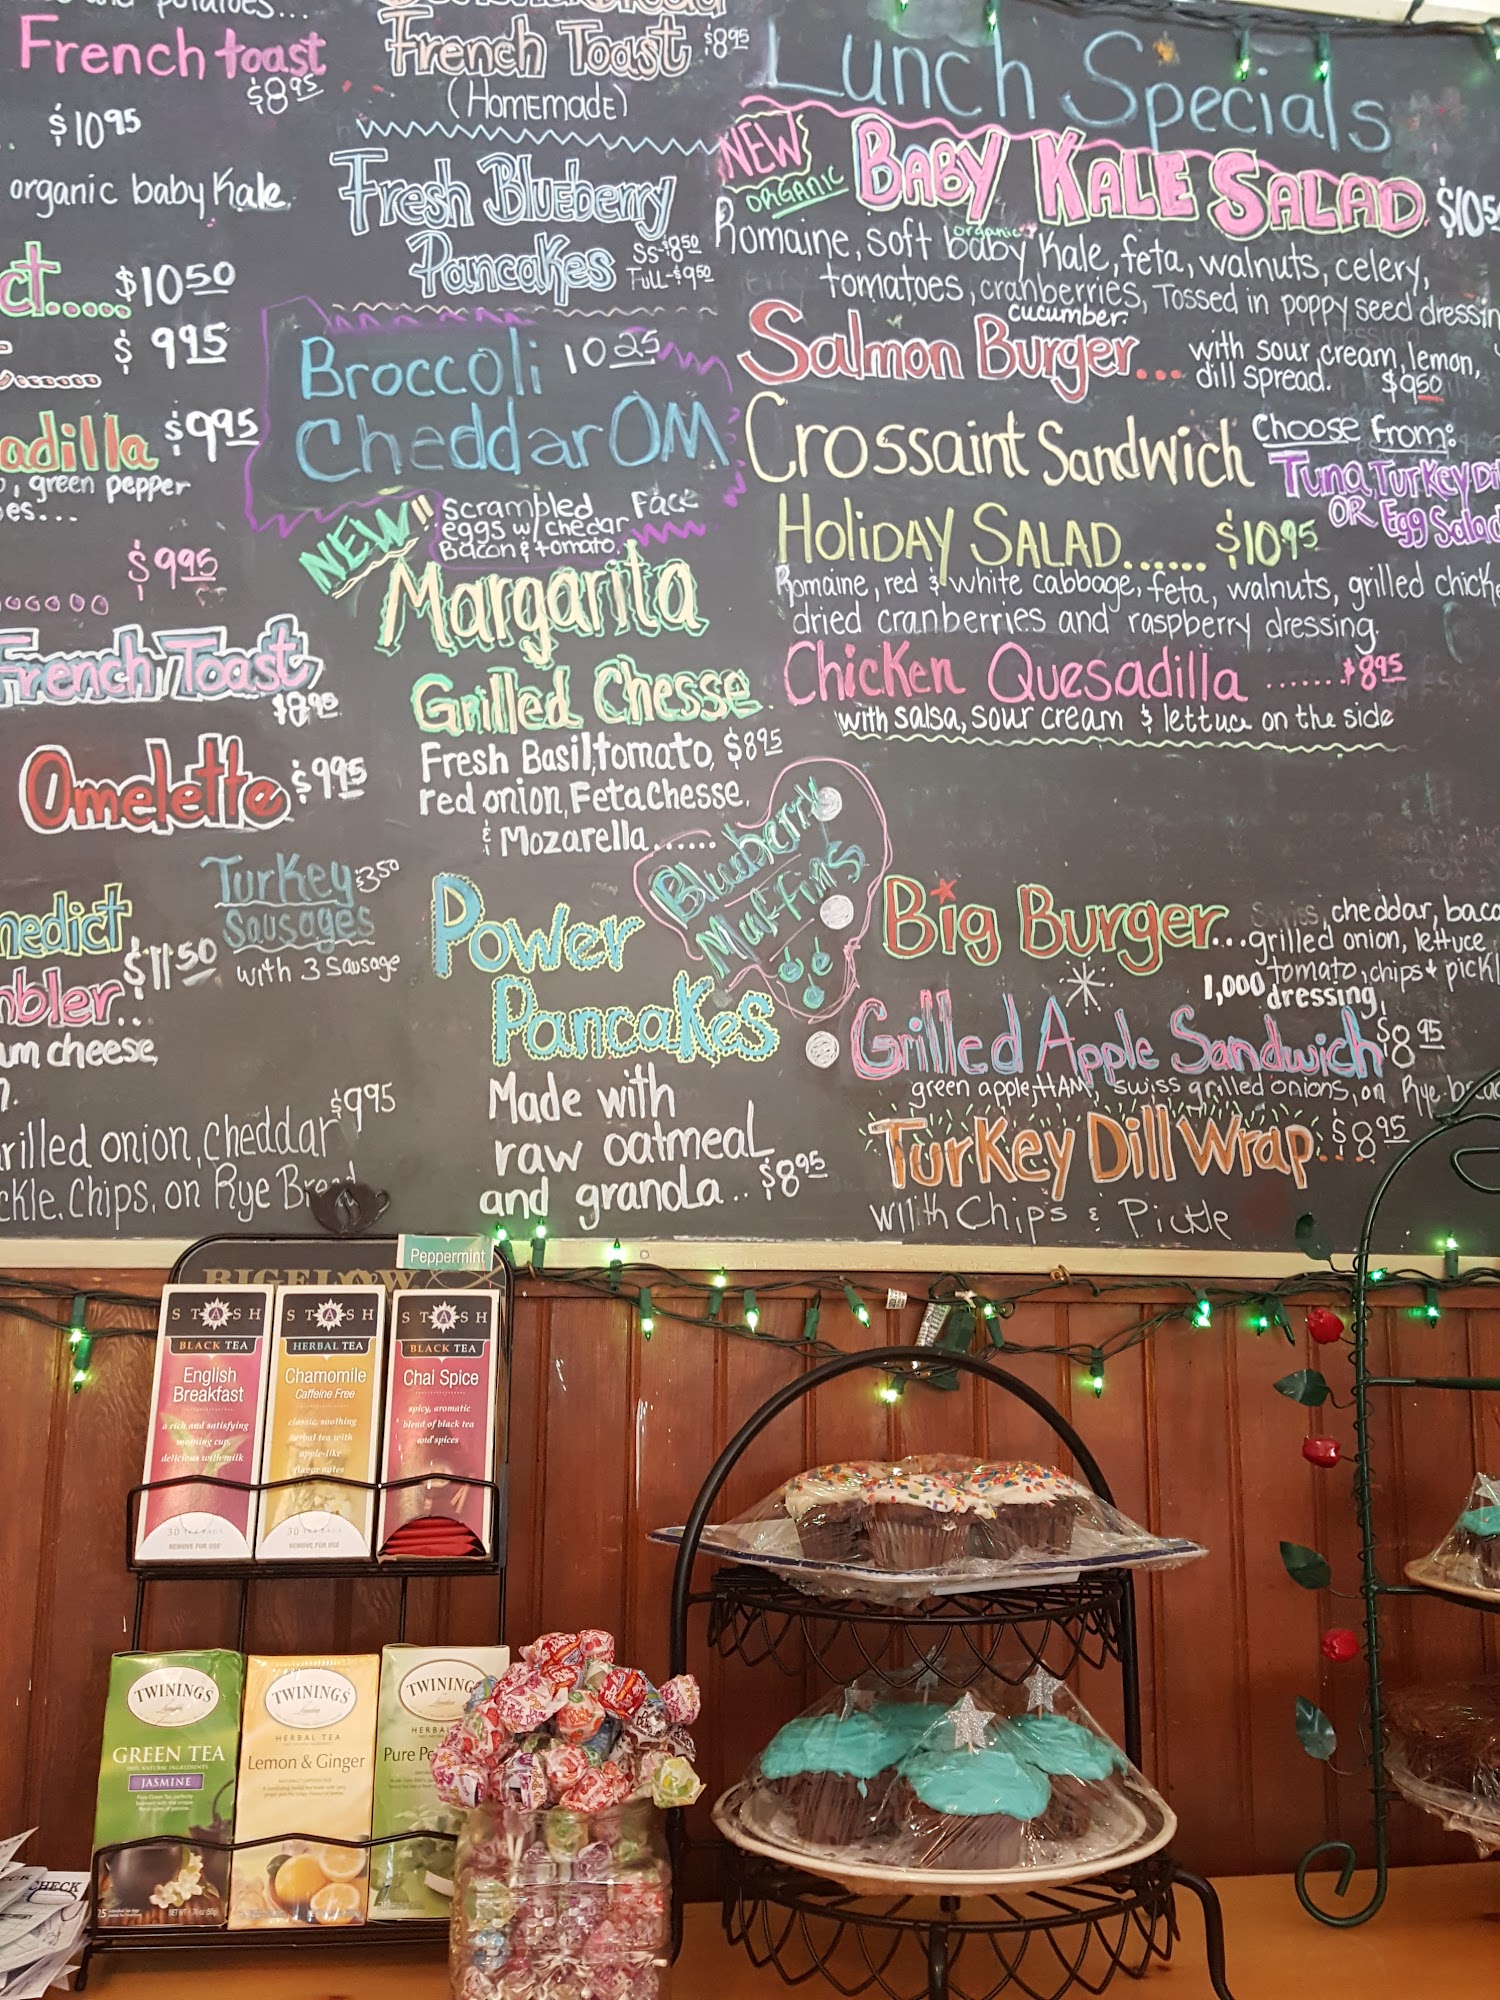 and potatoes...
French toast
$8.95
$10.95
organic baby Kale.
$10.50
$9.95
adilla $9.95
, green pepper
oes...
$9.95
French Toast
$8.95
Omelette $9.95
Turkey $3.50
Sausages
with 3 Sausage
nedict
$11.50
mbler..
am cheese,
$9.95
rilled onion, cheddar
ckle, Chips, on Rye Bread
French Toast $8.95
(Homemade)
Fresh Blueberry
Pancakes
SS-$8.50
Full-$9.50
Broccoli 10.25
Cheddar OM
NEW!!
Scrambled Face
eggs w/ chedar
Bacon & tomato.
Margarita
Grilled Chesse
Fresh Basil, tomato, $8.95
red onion, Feta Chesse,
& Mozarella......
Blueberry
Muffins
Power
Pancakes
Made with
raw oatmeal
and granola.. $8.95
Lunch Specials
NEW
ORGANIC
BABY KALE SALAD $10.50
Romaine, soft baby Kale, feta, walnuts, celery,
organic
tomatoes, cranberries, Tossed in poppy seed dressin
cucumber.
Salmon Burger... with sour cream, lemon,
dill spread. $9.50
Crossaint Sandwich Choose From:
Tuna, Turkey Dil
OR Egg Salad
HOLIDAY SALAD...... $10.95
Romaine, red & white cabbage, feta, walnuts, grilled chicke
dried cranberries and raspberry dressing.
Chicken Quesadilla .......$8.95
with salsa, sour cream & lettuce on the side
Big Burger... Swiss, cheddar, baco
grilled onion, lettuce
tomato, chips + pickl
1,000 dressing,
Grilled Apple Sandwich $8.95
green apple, HAM, swiss grilled onions, on Rye bread
Turkey Dill Wrap... $8.95
wiith Chips & Pickle
BIGELOW
Peppermint
STASH
BLACK TEA
English
Breakfast
a rich and satisfying
morning cup,
delicious with milk
30 TEA BAGS
REMOVE FOR USE
STASH
HERBAL TEA
Chamomile
Caffeine Free
classic, soothing
herbal tea with
apple-like
flavor notes
30 TEA BAGS
REMOVE FOR USE
STASH
BLACK TEA
Chai Spice
spicy, aromatic
blend of black tea
and spices
TWININGS
London
GREEN TEA
100% NATURAL INGREDIENTS
JASMINE
TWININGS
London
HERBAL TEA
Lemon & Ginger
TWININGS
London
HERBA
Pure Pe
CHECK